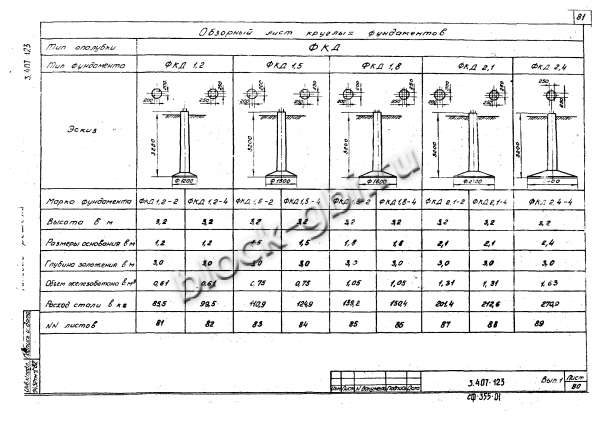 81
3.407-123
Обзорный лист круглых фундаментов
Тип опалубки ФКД
Тип фундамента ФКД 1,2 ФКД 1,5 ФКД 1,8 ФКД 2,1 ФКД 2,4
Эскиз
200 200 200 200 250 250 250 250 250
3200 3200 3200 3200 3200
Ф1200 Ф1500 Ф1800 Ф2100
Марка фундамента ФКД 1,2-2 ФКД 1,2-4 ФКД 1,5-2 ФКД 1,5-4 ФКД 1,8-2 ФКД 1,8-4 ФКД 2,1-2 ФКД 2,1-4 ФКД 2,4-4
Высота в м 3,2 3,2 3,2 3,2 3,2 3,2 3,2 3,2 3,2
Размеры основания в м 1,2 1,2 1,5 1,5 1,8 1,8 2,1 2,1 2,4
Глубина заложения в м 3,0 3,0 3,0 3,0 3,0 3,0 3,0 3,0 3,0
Объем железобетона в м³ 0,61 0,61 0,75 0,75 1,05 1,05 1,31 1,31 1,63
Расход стали в кг 99,5 110,9 124,9 201,4 212,6
NN листов 81 82 83 84 85 86 87 88 89
block-gbi.ru
3.407-123 Вып. 1 Лист
80
Изм. Лист N докум. Подпись Дата
сф-355-01